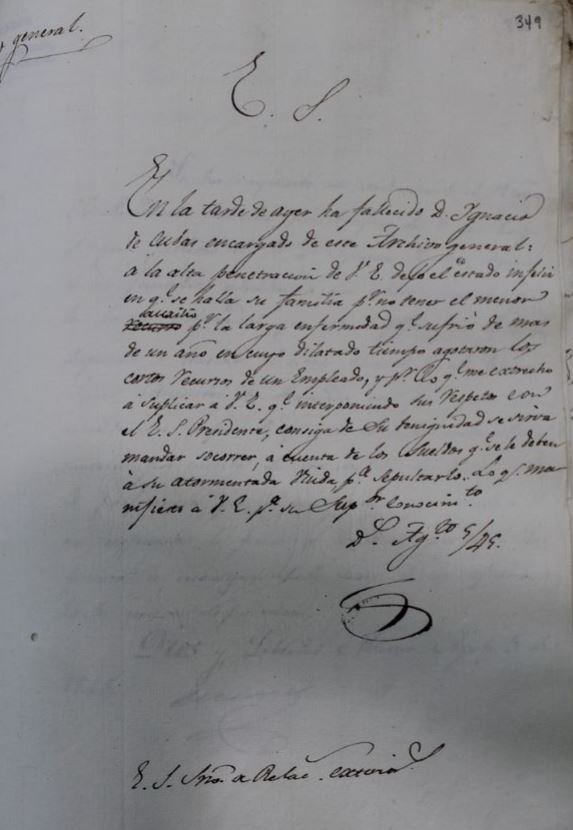 349
general.
E. S.
En la tarde de ayer ha fallecido D. Ygnacio
de Cubas encargado de este Archivo general:
á la alta penetracion de V. E. dejo el estado infeliz
en q.e se halla su familia p.r no tener el menor
p.r la larga enfermedad q.e sufrió de mas
de un año en cuyo dilatado tiempo agotaron los
cortos recursos de un Empleado, y p.r lo q.e me estrecho
á suplicar á V. E. q.e interponiendo sus respetos con
el E. S. Presidente, consiga de su benignidad se sirva
mandar socorrer, á cuenta de los sueldos q.e se le deben
á su atormentada Viuda, p.a sepultarlo. Lo q.e ma
nifiesto á V. E. p.a su Sup.or conocim.to
D.s Ag.to 5/45.
E. S. Mño. de Relac. exterior.s